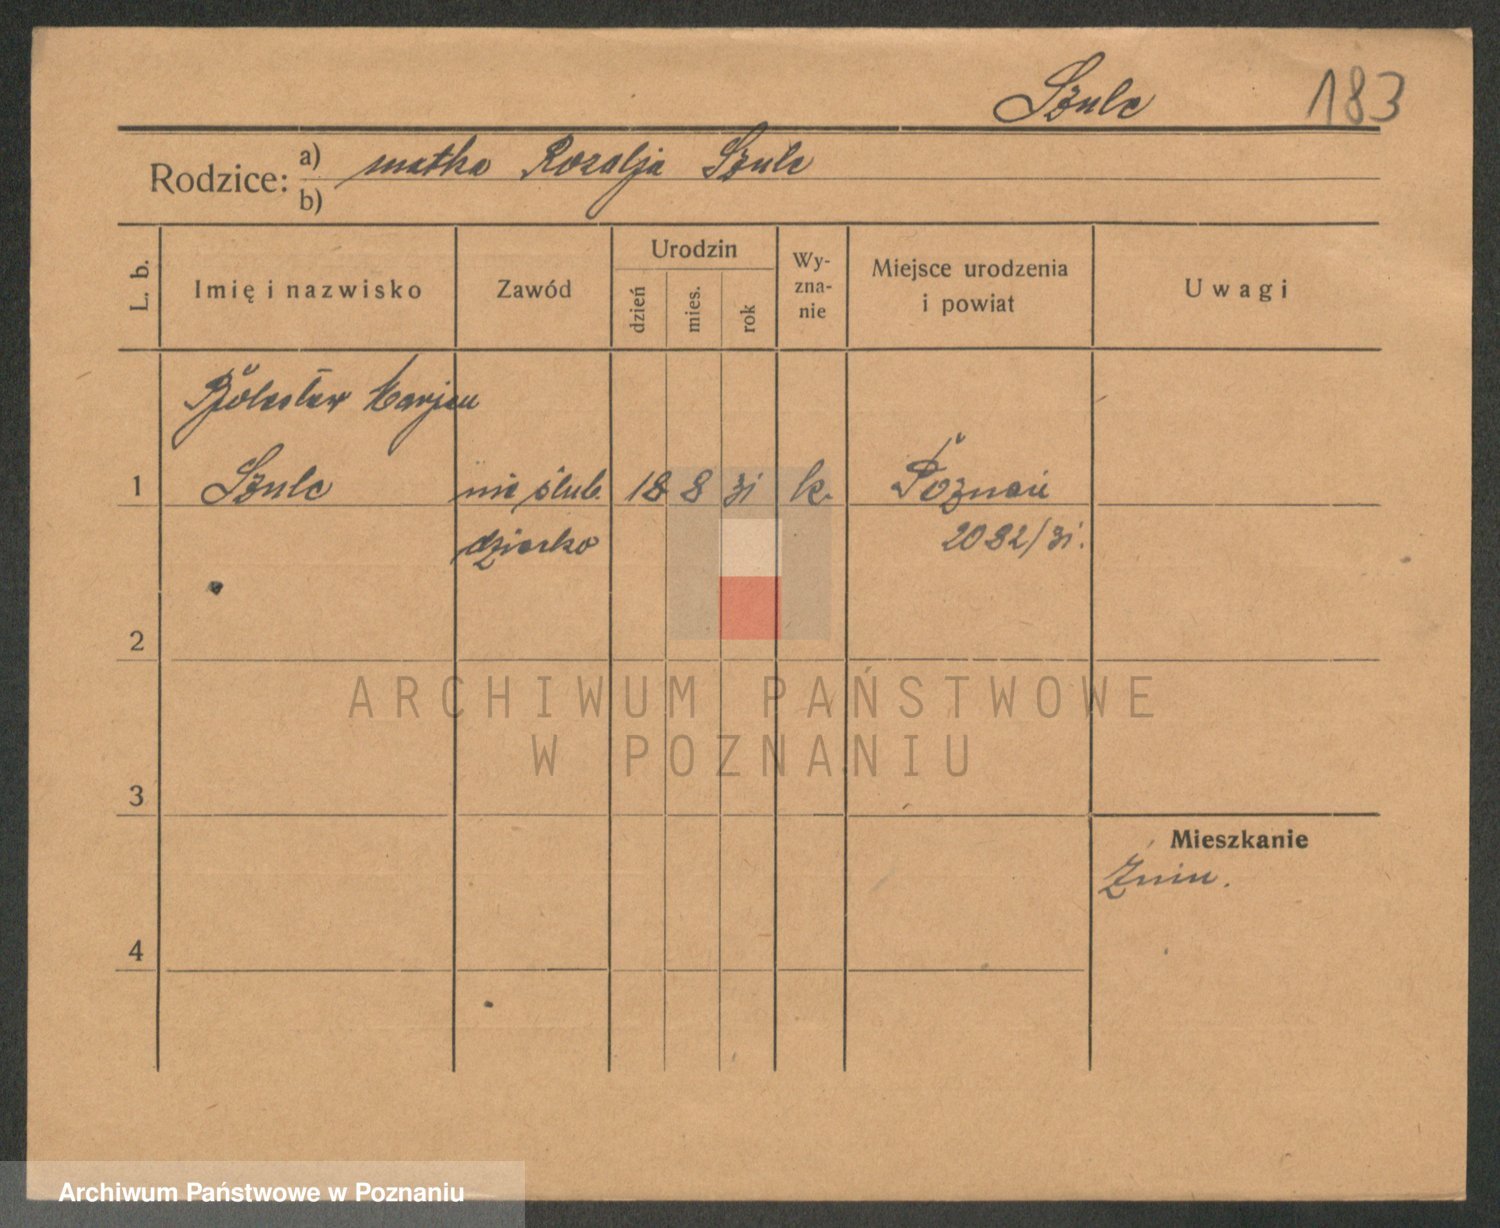 Szulc 183
Rodzice: a) matka Rozalja Szulc
b)
L. b. Imię i nazwisko Zawód Urodzin dzień mies. rok Wy-zna-nie Miejsce urodzenia i powiat Uwagi
Bolesław Marjan
1 Szulc nie ślub. 18 8 31 k. Poznań
dziecko 2082/31.
2
ARCHIWUM PAŃSTWOWE
W POZNANIU
3
Mieszkanie
Żnin.
4
Archiwum Państwowe w Poznaniu